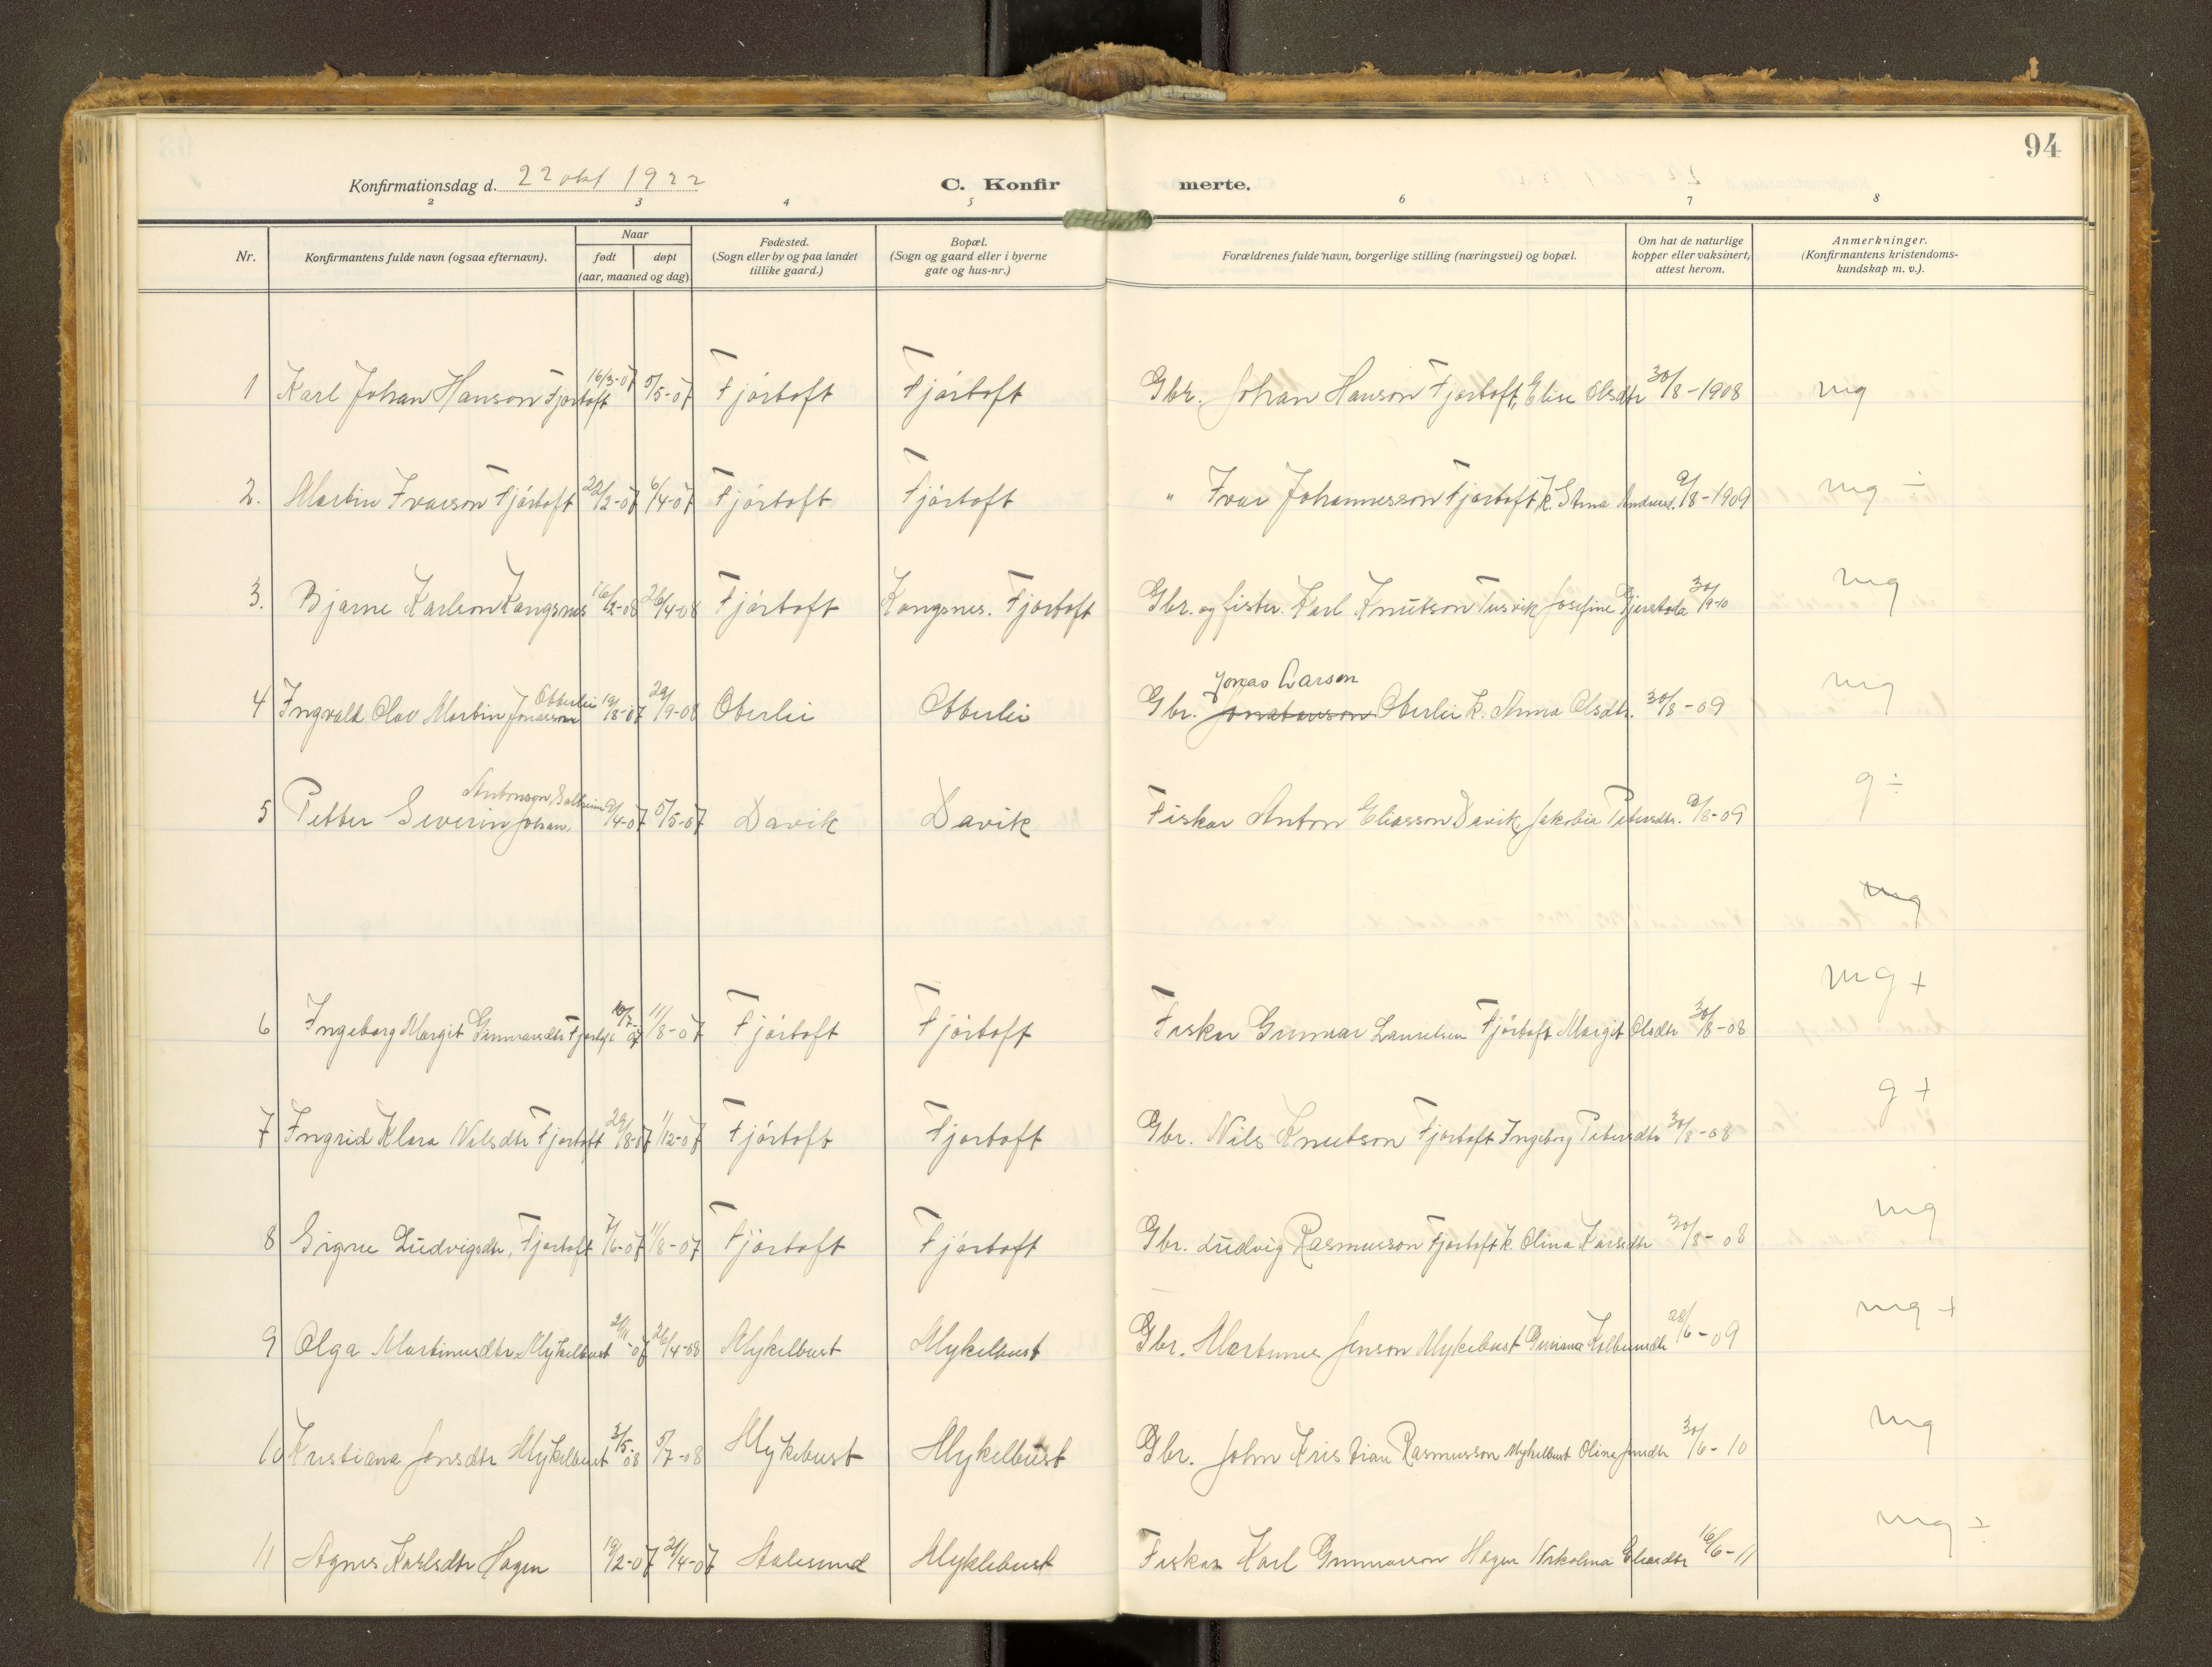 94
Konfirmationsdag d. 22 okt 1922 C. Konfirmerte.
2 3 4 5 6 7 8
Nr. Konfirmantens fulde navn (ogsaa efternavn). Naar født døpt (aar, maaned og dag) Fødested. (Sogn eller by og paa landet tillike gaard.) Bopæl. (Sogn og gaard eller i byerne gate og hus-nr.) Forældrenes fulde navn, borgerlige stilling (næringsvei) og bopæl. Om hat de naturlige kopper eller vaksinert, attest herom. Anmerkninger. (Konfirmantens kristendoms- kundskap m. v.).
1 Karl Johan Hanson Fjørtoft 16/3-07 5/5-07 Fjørtoft Fjørtoft Gbr. Johan Hanson Fjørtoft, Elise Olsdtr 30/8-1908 mg
2. Martin Ivarson Fjørtoft 22/2-07 6/4-07 Fjørtoft Fjørtoft " Ivar Johannesson Fjørtoft, K. Anna Andreasd. 9/8-1909 mg ÷
3. Bjarne Karlson Kongsnes 16/2-08 26/4-08 Fjørtoft Kongsnes. Fjørtoft Gbr. og fisker. Karl Knutson Tusvik Josefine 30/9-10 mg
4 Ingvald Olav Martin Jonasson Obberlei 19/8-07 29/9-08 Oberlei Obberlei Gbr. Jonatanson Jonas Larson Oberlei K. Anna Olsdtr. 30/8-09 mg
5 Petter Severin Johan Antonson Solheim 9/4-07 5/5-07 Davik Davik Fiskar Anton Eliasson Davik, Jakobia Petersdtr. 9/8-09 g ÷
mg
6 Ingeborg Margit Gunnarsdtr Fjørtoft 10/7-07 11/8-07 Fjørtoft Fjørtoft Fiskar Gunnar Lauritsen Fjørtoft Margit Olsdtr 30/8-08 mg +
7 Ingrid Klara Nilsdtr Fjørtoft 29/8-07 1/12-07 Fjørtoft Fjortoft Gbr. Nils Knutson Fjørtoft Ingeborg Petersdtr 30/8-08 g +
8 Signe Ludvigsdtr, Fjørtoft 7/6-07 11/8-07 Fjørtoft Fjørtoft Gbr. Ludvig Rasmusson Fjørtoft K. Olina Larsdtr 30/8-08 mg
9 Olga Martinusdtr. Mykelbust 21/11-07 26/4-08 Mykelbust Mykelbust Gbr. Martinus Jenson Mykebust 28/6-09 mg +
10 Kristiana Jonsdtr Mykelbust 3/5-08 5/7-08 Mykebust Mykelbust Gbr. John Kristian Rasmusson Mykelbust Olina Jensdtr 30/6-10 mg
11 Agnes Karlsdtr Hagen 19/2-07 21/4-07 Aalesund Myklebust Fiskar Karl Gunnarson Hagen Nikolina Eliasdtr 16/6-11 mg ÷